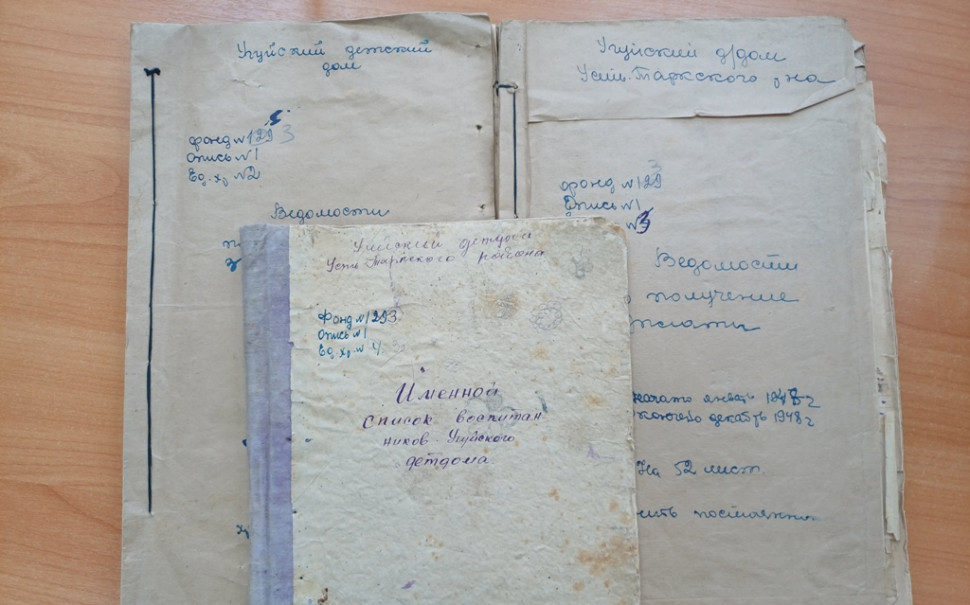 Угуйский детский
дом
фонд №1293
Опись №1
Ед. хр №2
Ведомости
Угуйский д/дом
Усть-Таркского р-на
фонд №1293
Опись №1
№3
Ведомости
получение
начато январь 1948 г
декабрь 1948 г
На 52 лист.
Угуйский детдом
Усть-Таркского района
Фонд №1293
Опись №1
Ед. хр. № 4
Именной
список воспитан
ников Угуйского
детдома.